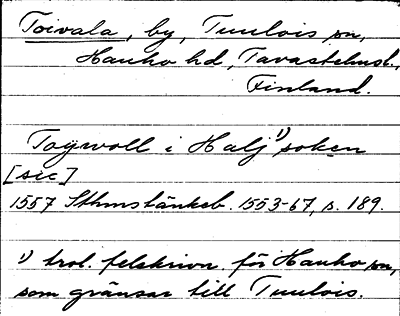 Toivala, by, Tuulois sn,
Hauho hd, Tavastehusl.,
Finland.
Toÿwoll i Halj¹⁾ soken
[sic]
1557 Sthmstänkeb. 1553-67, s. 189.
¹⁾ trol. felskrivn. för Hauho sn,
som gränsar till Tuulois.